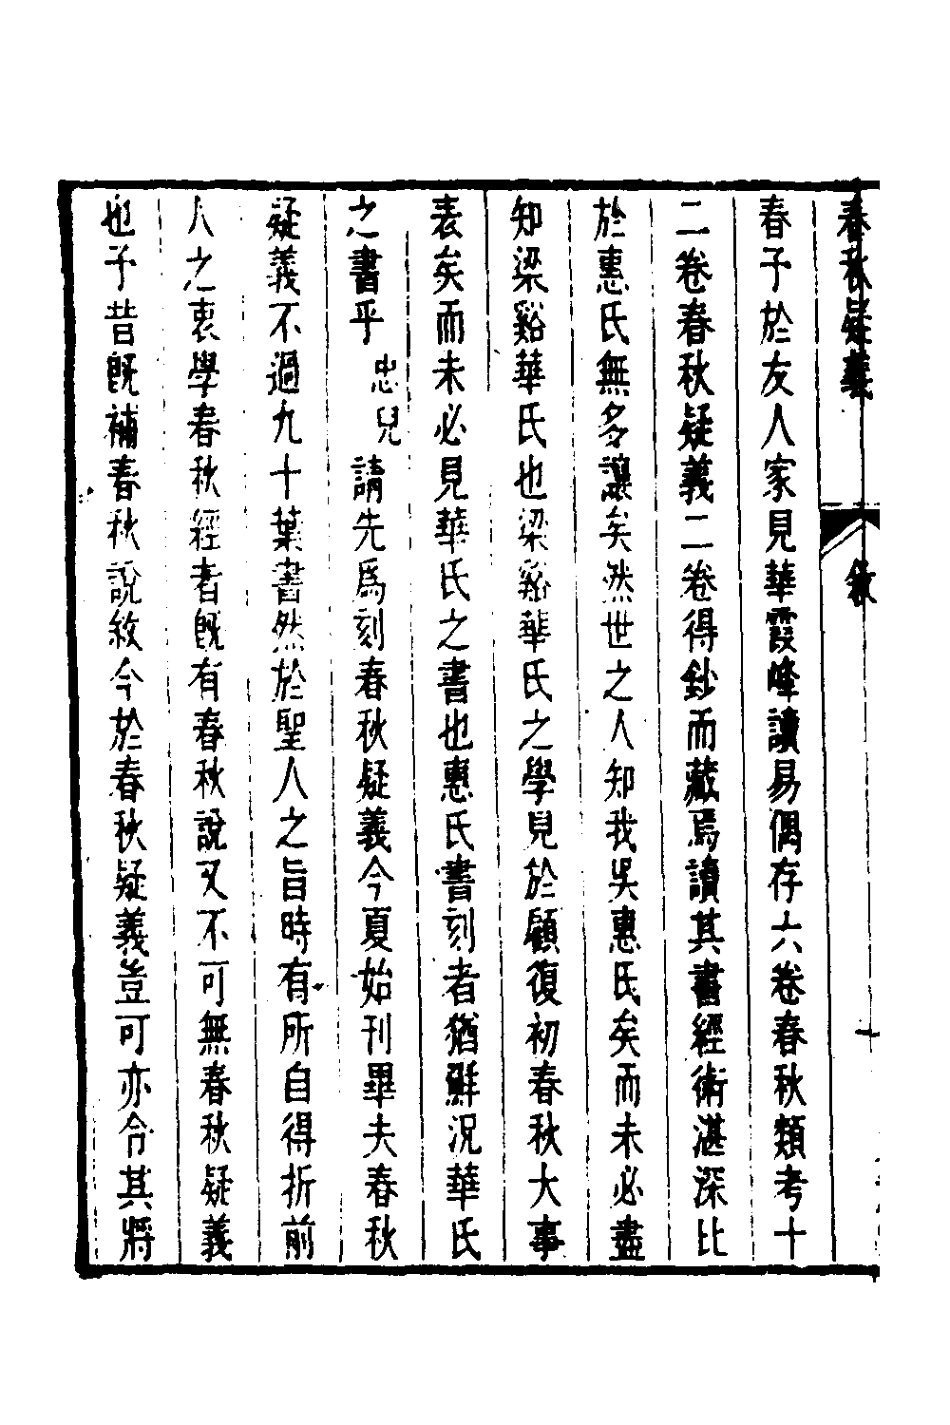 春秋疑義　敘
春予於友人家見華霞峰讀易偶存六卷春秋類考十
二卷春秋疑義二卷得鈔而藏焉讀其書經術湛深比
於惠氏無多讓矣然世之人知我吳惠氏矣而未必盡
知梁谿華氏也梁谿華氏之學見於顧復初春秋大事
表矣而未必見華氏之書也惠氏書刻者猶鮮況華氏
之書乎忠兒請先爲刻春秋疑義今夏始刊畢夫春秋
疑義不過九十葉書然於聖人之旨時有所自得折前
人之衷學春秋經者旣有春秋說又不可無春秋疑義
也予昔旣補春秋說敘今於春秋疑義豈可亦令其將